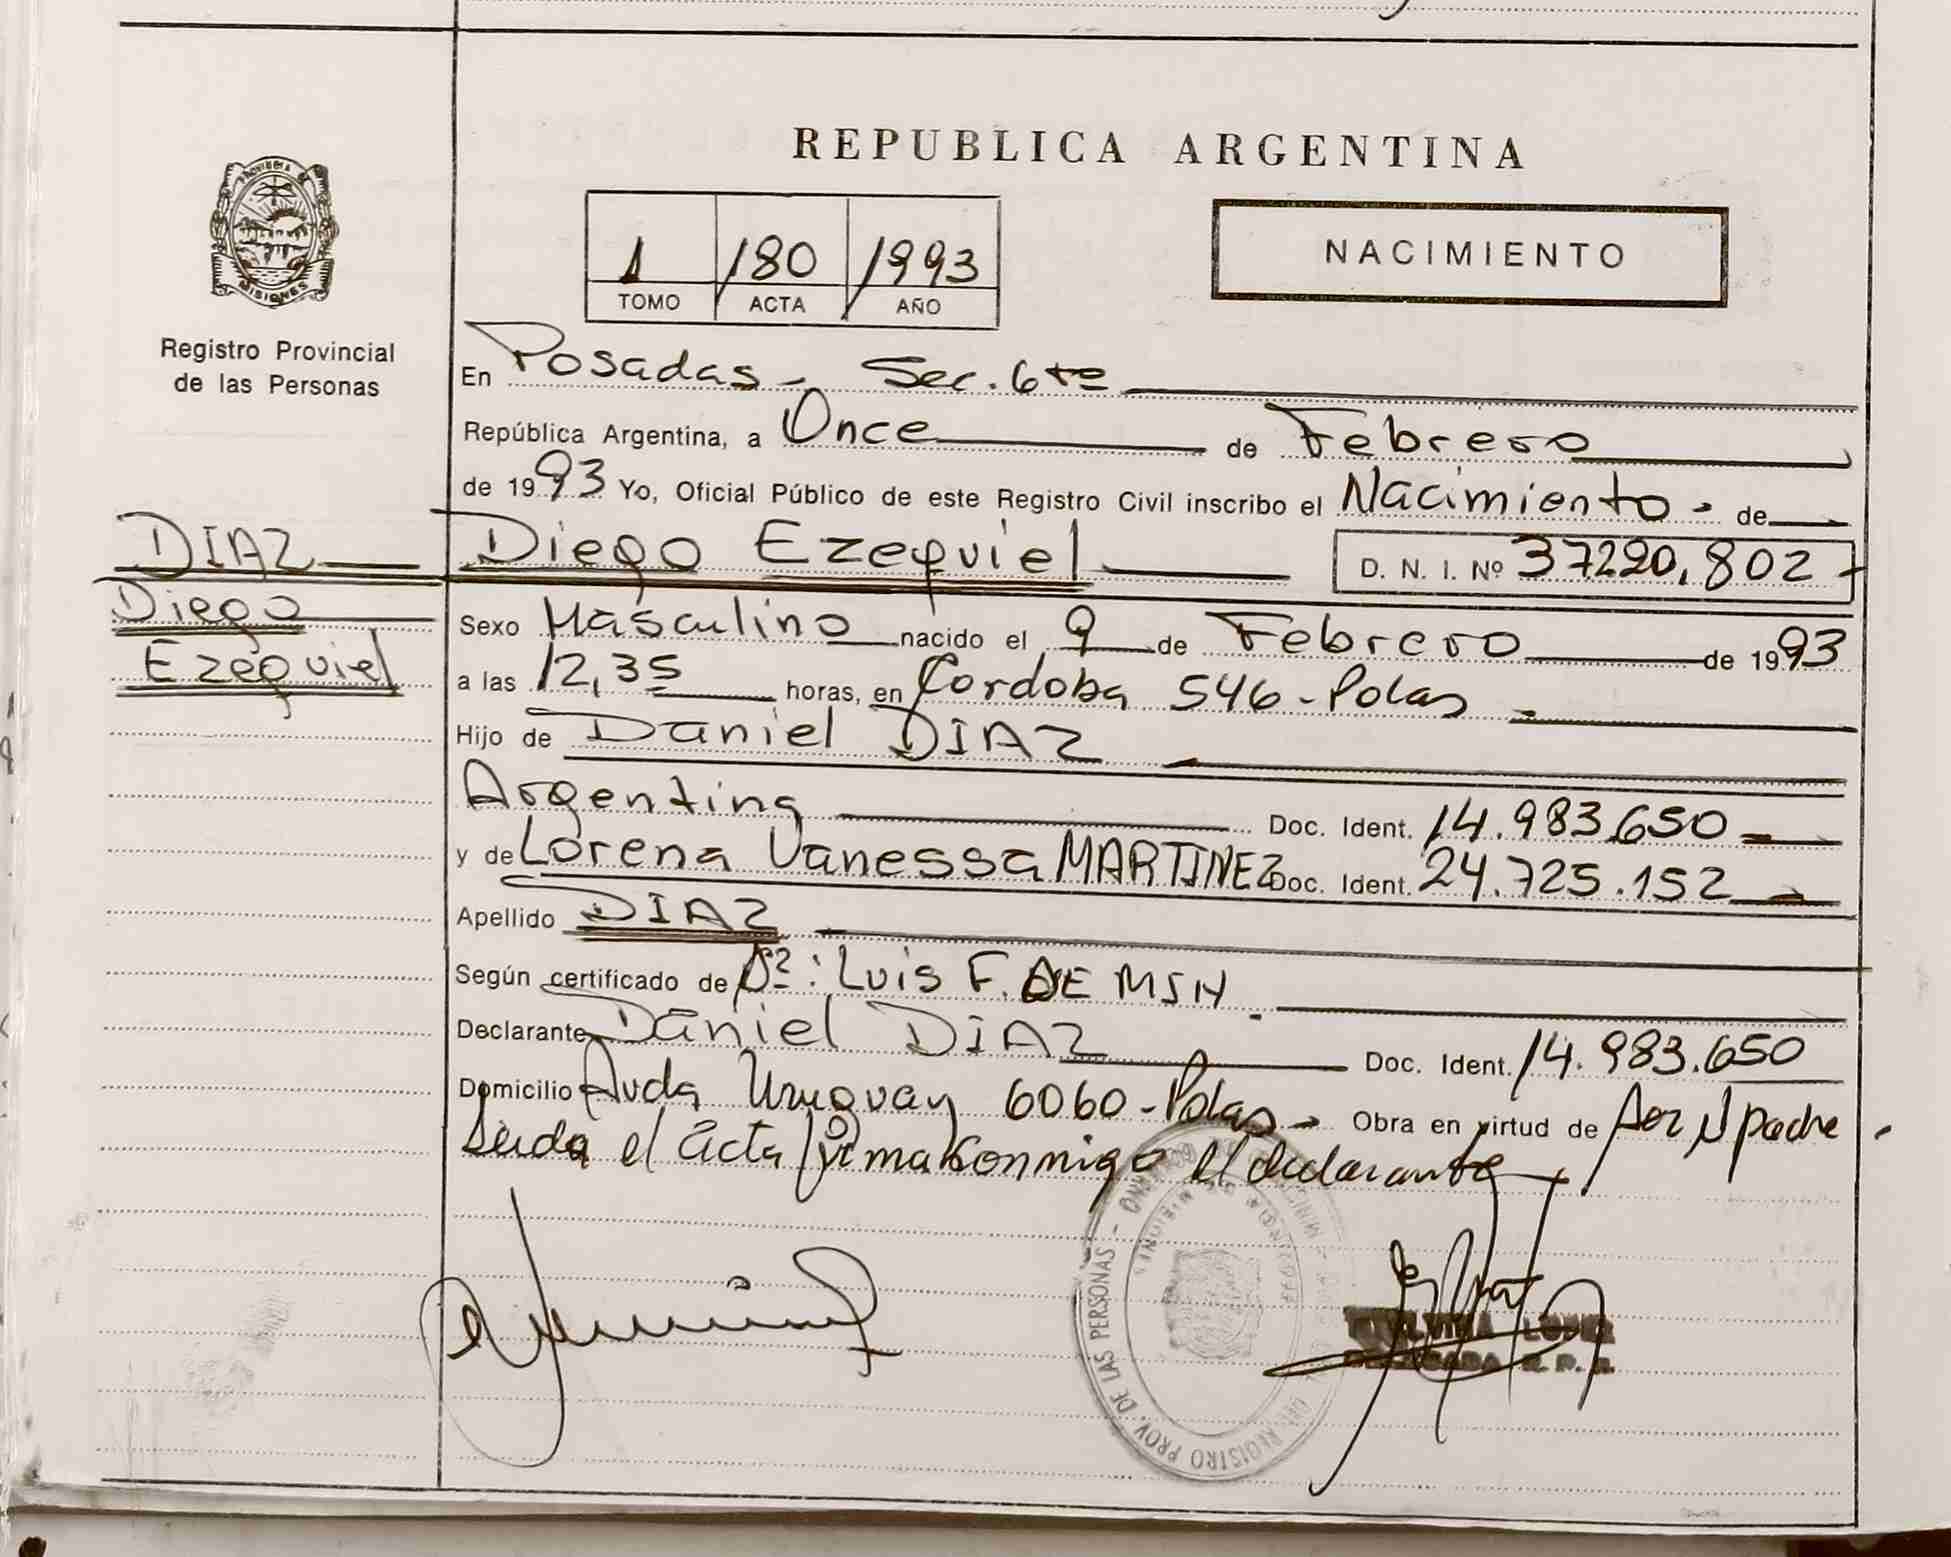 REPUBLICA ARGENTINA
PROVINCIA DE
MISIONES
Registro Provincial
de las Personas
1 180 1993
TOMO ACTA AÑO
NACIMIENTO
En Posadas - Sec. 6ta
República Argentina, a Once de Febrero
de 1993 Yo, Oficial Público de este Registro Civil inscribo el Nacimiento - de
DIAZ
Diego
Ezequiel
Diego Ezequiel D. N. I. Nº 37220.802
Sexo Masculino nacido el 9 de Febrero de 1993
a las 12,35 horas, en Cordoba 546 - Pdas
Hijo de Daniel DIAZ
Argentina Doc. Ident. 14.983.650
y de Lorena Vanessa MARTINEZ Doc. Ident. 24.725.152
Apellido DIAZ
Según certificado de Dr: Luis F. DE
Declarante Daniel DIAZ Doc. Ident. 14.983.650
Domicilio Avda Uruguay 6060 - Pdas - Obra en virtud de Ser el padre
Leida el acta firma conmigo el declarante
REGISTRO PROV. DE LAS PERSONAS
LOPEZ